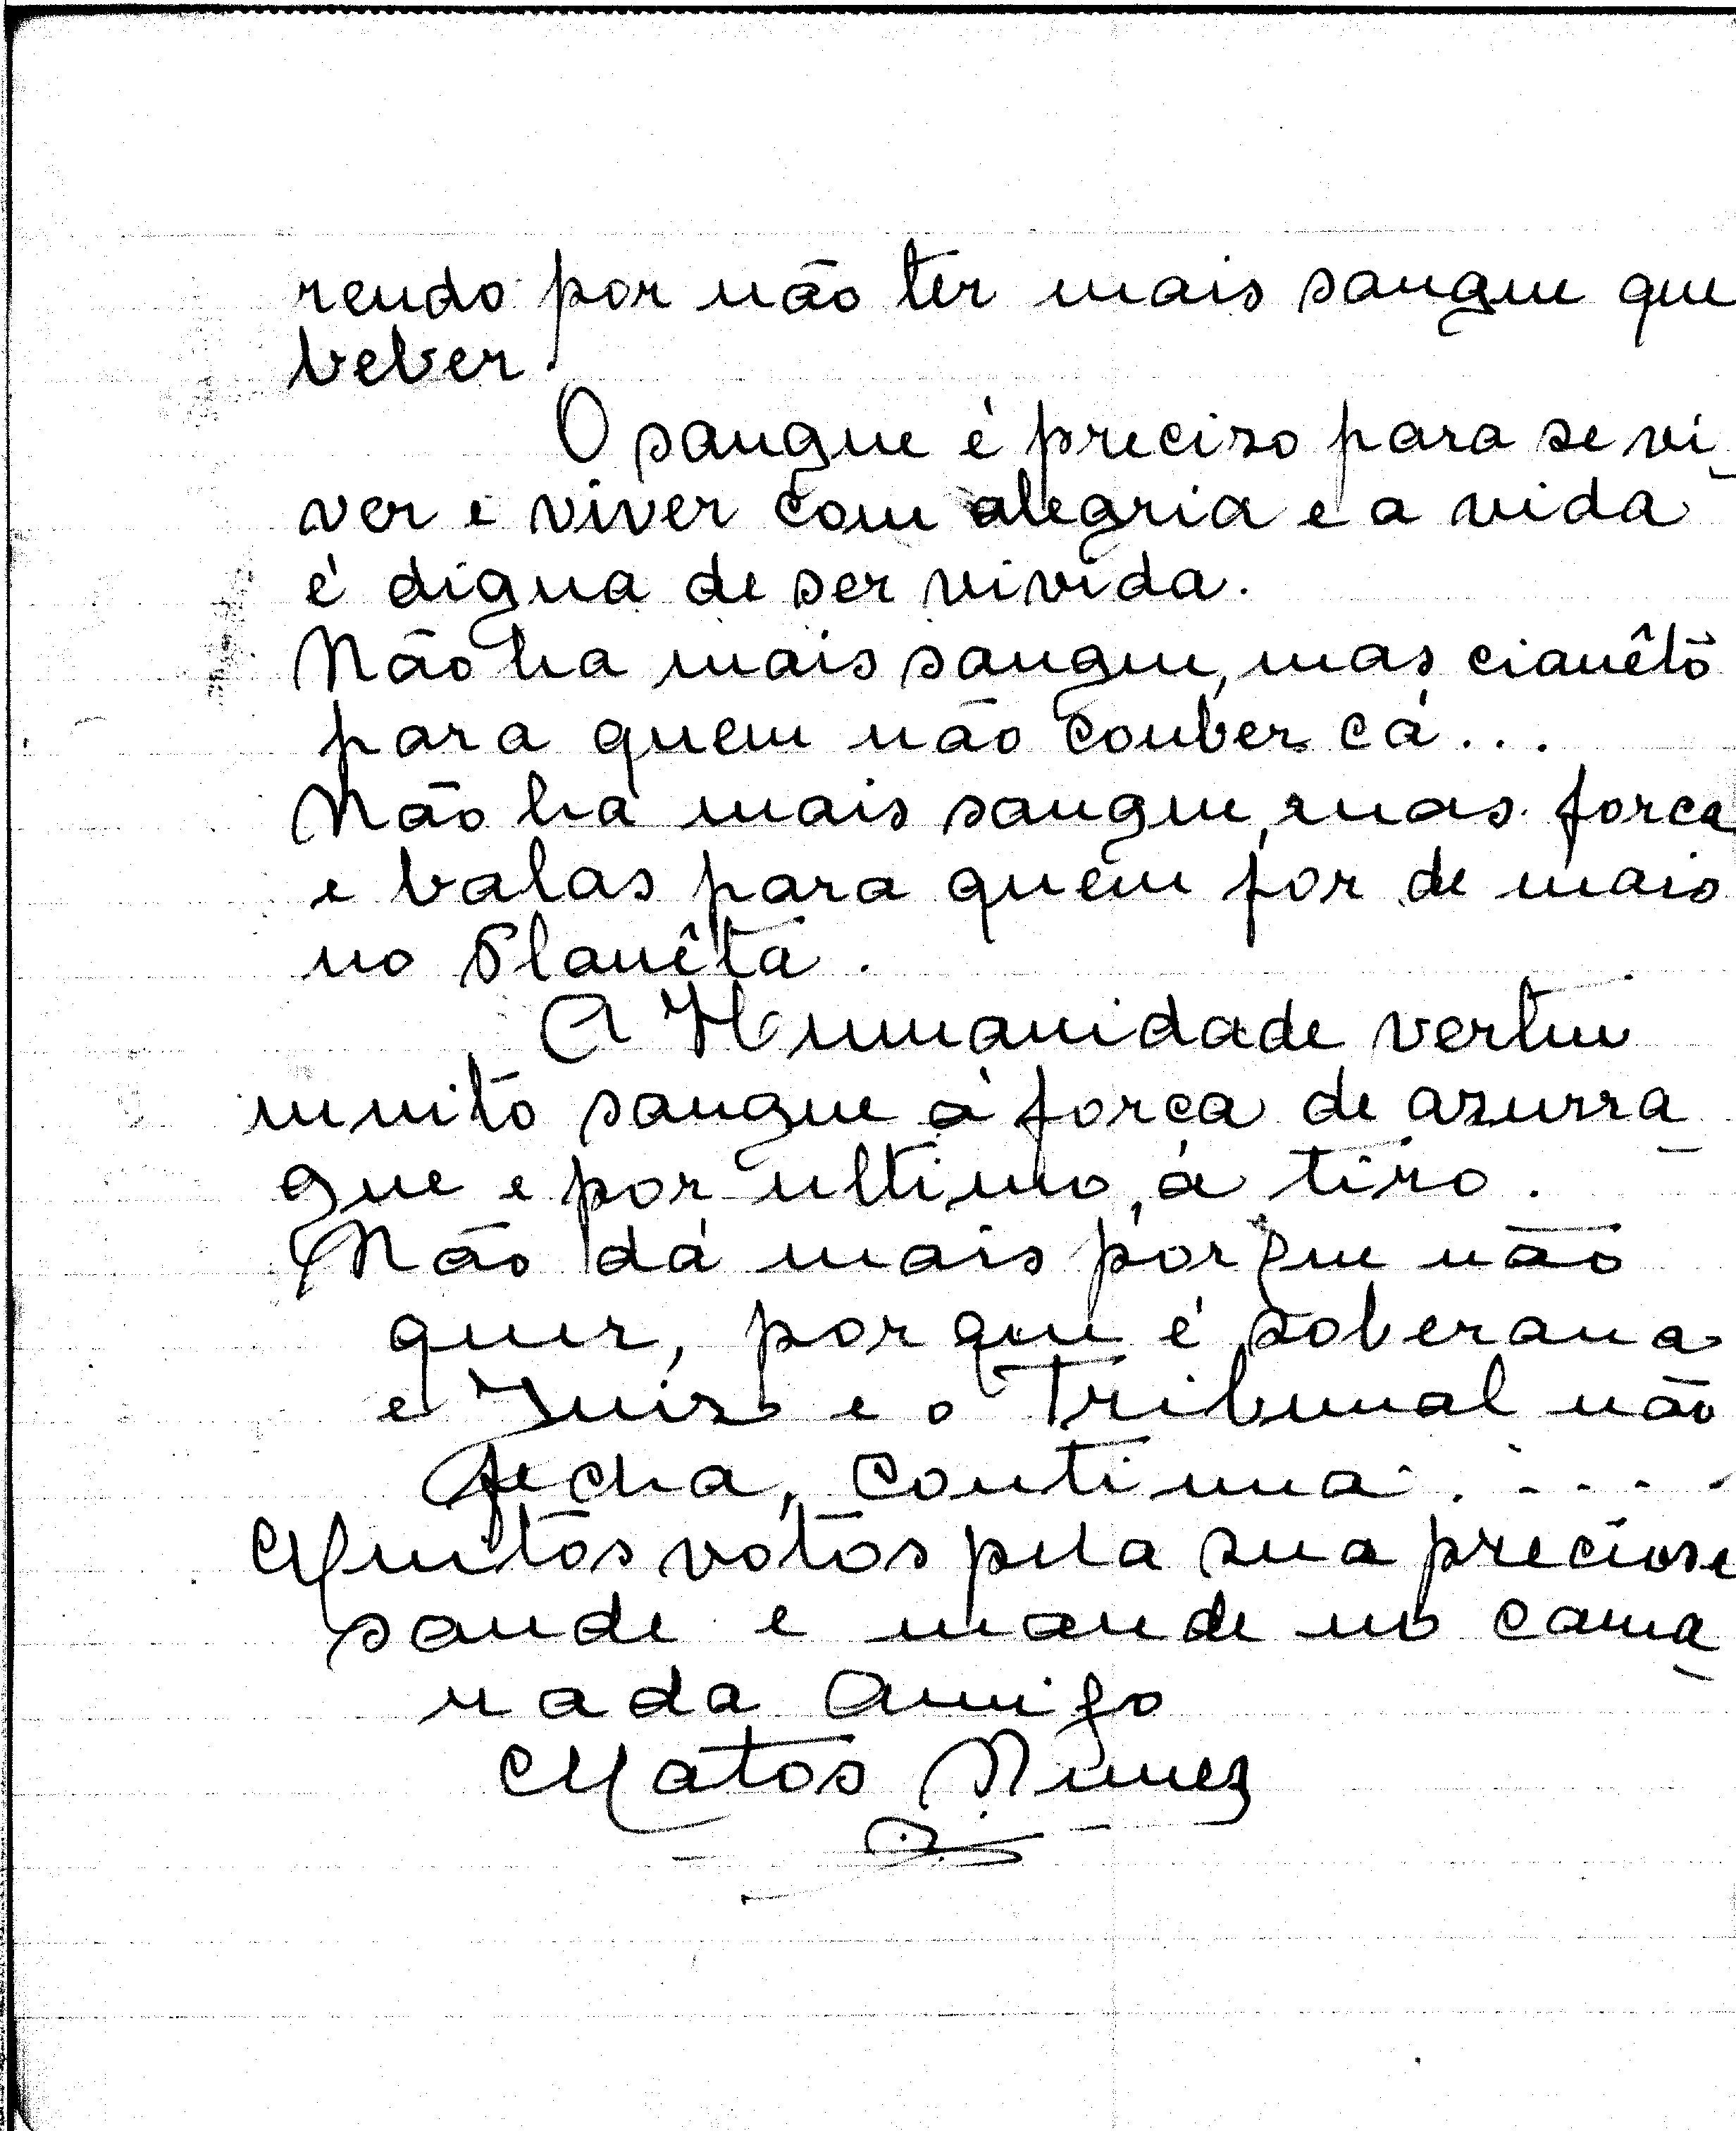 rendo por não ter mais sangue que
beber.
O sangue é preciso para se vi-
ver e viver com alegria e a vida
é digna de ser vivida.
Não ha mais sangue, mas cianêto
para quem não couber cá...
Não ha mais sangue, mas forca
e balas para quem fôr de mais
no Planêta.
A Humanidade verteu
muito sangue á força de azurra-
gue e por ultimo, á tiro.
Não dá mais porque não
quer, porque é soberana
e Juiz e o Tribunal não
fecha, continua.....
Muitos votos pela sua preciosa
saude e mande no cama-
rada Amigo
Matos Nunes